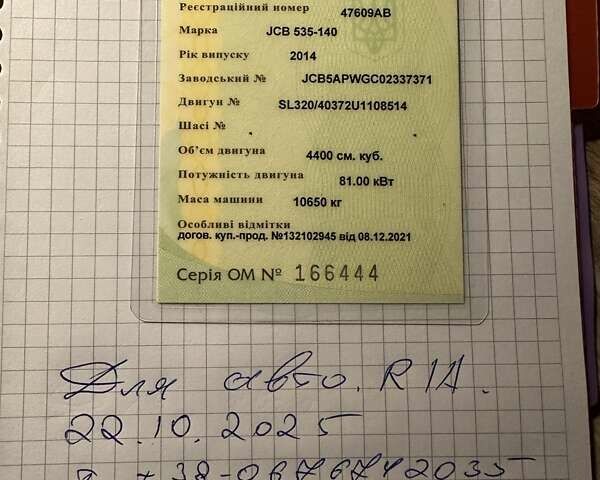 Реєстраційний номер 47609АВ
Марка JCB 535-140
Рік випуску 2014
Заводський № JCB5APWGC02337371
Двигун № SL320/40372U1108514
Шасі №
Об’єм двигуна 4400 см. куб.
Потужність двигуна 81.00 кВт
Маса машини 10650 кг
Особливі відмітки
догов. куп.-прод. №132102945 від 08.12.2021
Серія ОМ № 166444
Для авто. RIA.
22.10.2025
т. +38-0676742035